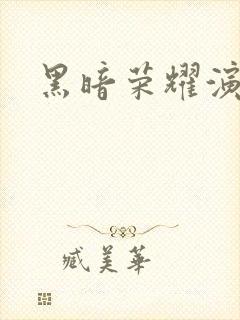 黑暗荣耀演
臧美華